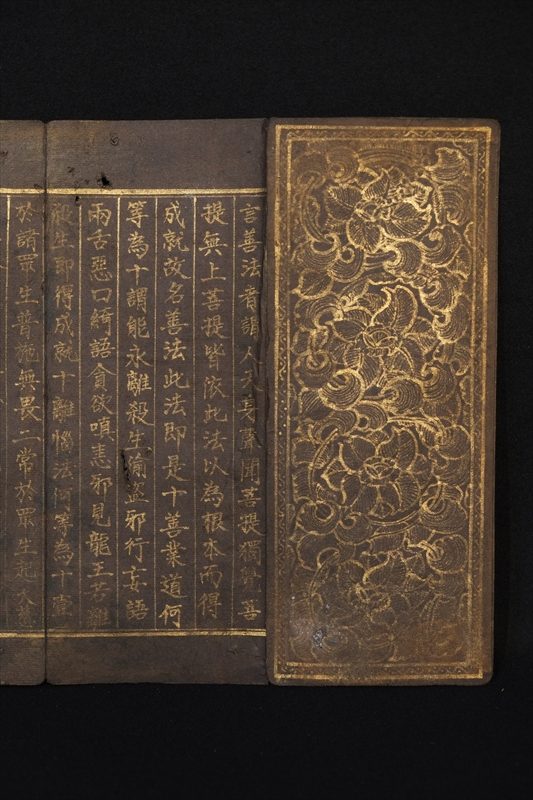 言善法者謂人天身聲聞菩提獨覺菩
提無上菩提皆依此法以為根本而得
成就故名善法此法即是十善業道何
等為十謂能永離殺生偷盜邪行妄語
兩舌惡口綺語貪欲嗔恚邪見龍王若離
殺生即得成就十離惱法何等為十壹
於諸眾生普施無畏二常於眾生起大慈